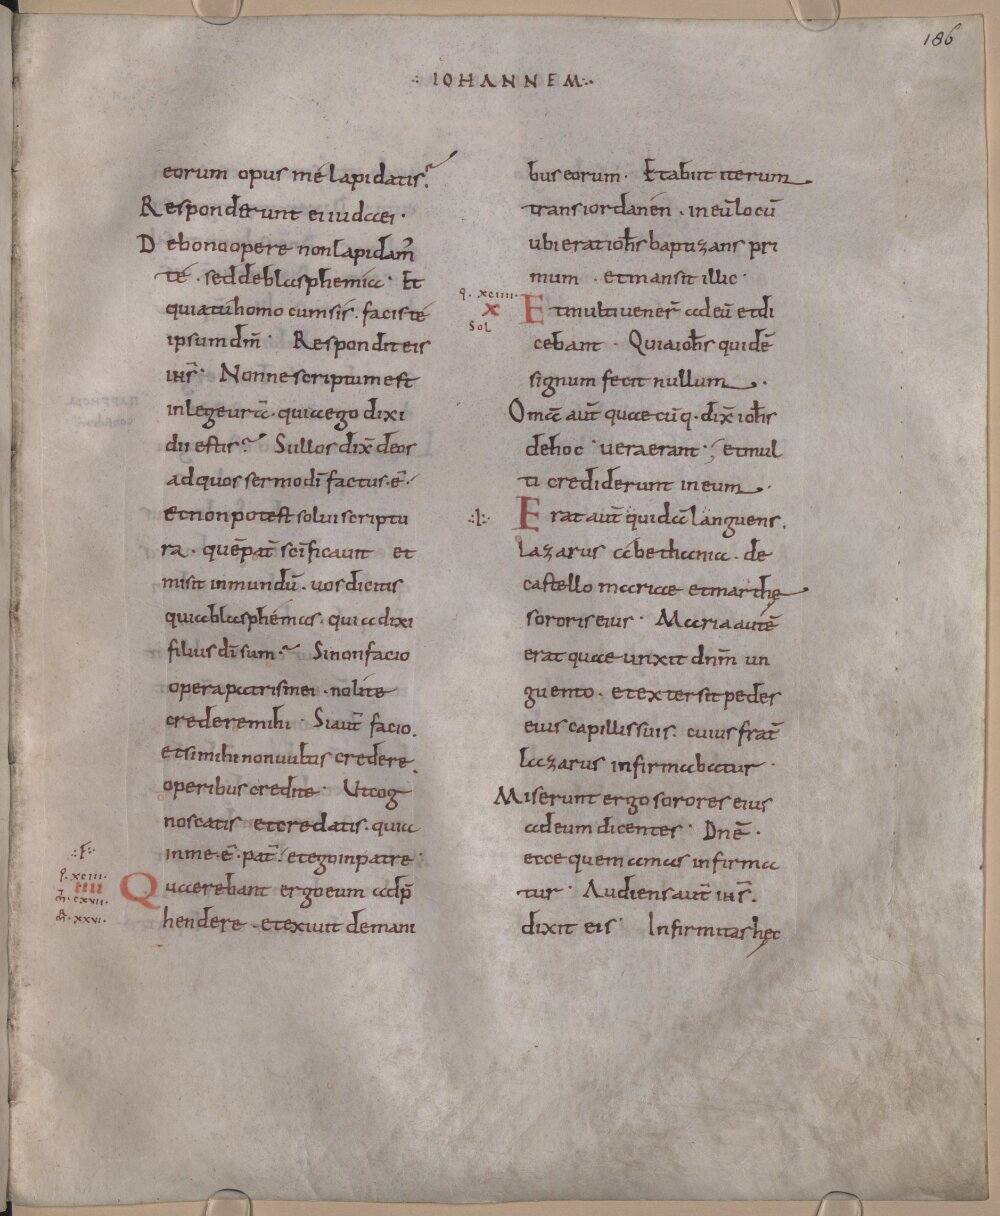 186
·:· IOHANNEM ·:·
eorum opus mé lapidatis?
Responderunt ei iudaei·
De bono opere non lapidam̄
té · sed de blasphemia· Et
quia tu homo cum sis· facis té
ipsum dm̄· Respondit eis
ihs̄· Nonne scriptum est
in lege ur̄a· quia ego dixi
dii estis? Si illos dix̄ deos
ad quos sermo dī factus· ē·
et non potest solui scriptu
ra· quē pat̄ sc̄ificauit et
misit in mundū· uos dicitis
quia blasphemas· quia dixi
filius dī sum? Si non facio
opera patris mei· nolite
credere mihi· Si aut̄ facio.
et si mihi non uultis credere.
operibus credite· Ut cog
noscatis et credatis· quia
in me· ē· pat̄· et ego in patre·
·:F·
q̄· xciii·
iiii
m̄· cxvii·
m̄· xxvi·
Quaerebant ergo eum adp̄
hendere· et exiuit de mani
bus eorum· Et abiit iterum
trans iordanen· in eū locū
ubi erat ioh̄s baptizans pri
mum · et mansit illic·
q̄· xciiii·
x
Sol
Et multi uener̄ ad eū et di
cebant · Quia ioh̄s quidē
signum fecit nullum·
Omā aut̄ quaecūq· dix̄ ioh̄s
de hoc· uera erant·; et mul
ti crediderunt in eum·
·:L:·
Erat aut̄ quidā languens.
lazarus a bethania· de
castello mariae et marthę
sororis eius· Maria autē
erat quae unxit dnm̄ un
guento· et extersit pedes
eius capillis suis· cuius frat̄
lazarus infirmabatur·
Miserunt ergo sorores eius
ad eum dicentes· Dnē·
ecce quem amas infirma
tur· Audiens aut̄ ihs̄.
dixit eis· Infirmitas hęc